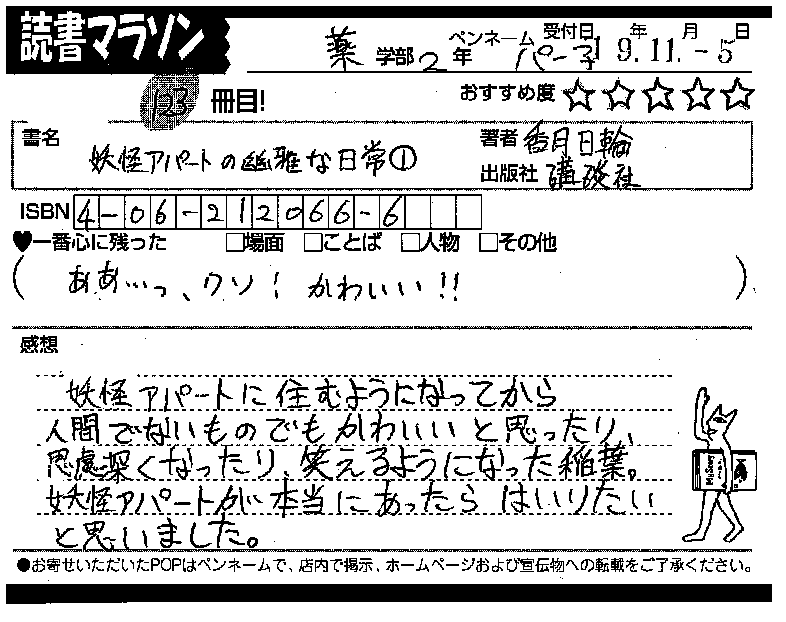 読書マラソン
薬 学部 2 年 ペンネーム パー子 受付日 19.年11.月-5日
123 冊目! おすすめ度 ☆☆☆☆☆
書名 妖怪アパートの幽雅な日常① 著者 香月日輪
出版社 講談社
ISBN 4-06-212066-6
♥一番心に残った □場面 □ことば □人物 □その他
( ああ…っ、ウソ! かわいい!! )
感想
妖怪アパートに住むようになってから
人間でないものでもかわいいと思ったり、
思慮深くなったり、笑えるようになった稲葉。
妖怪アパートが本当にあったらはいりたい
と思いました。
●お寄せいただいたPOPはペンネームで、店内で掲示、ホームページおよび宣伝物への転載をご了承ください。